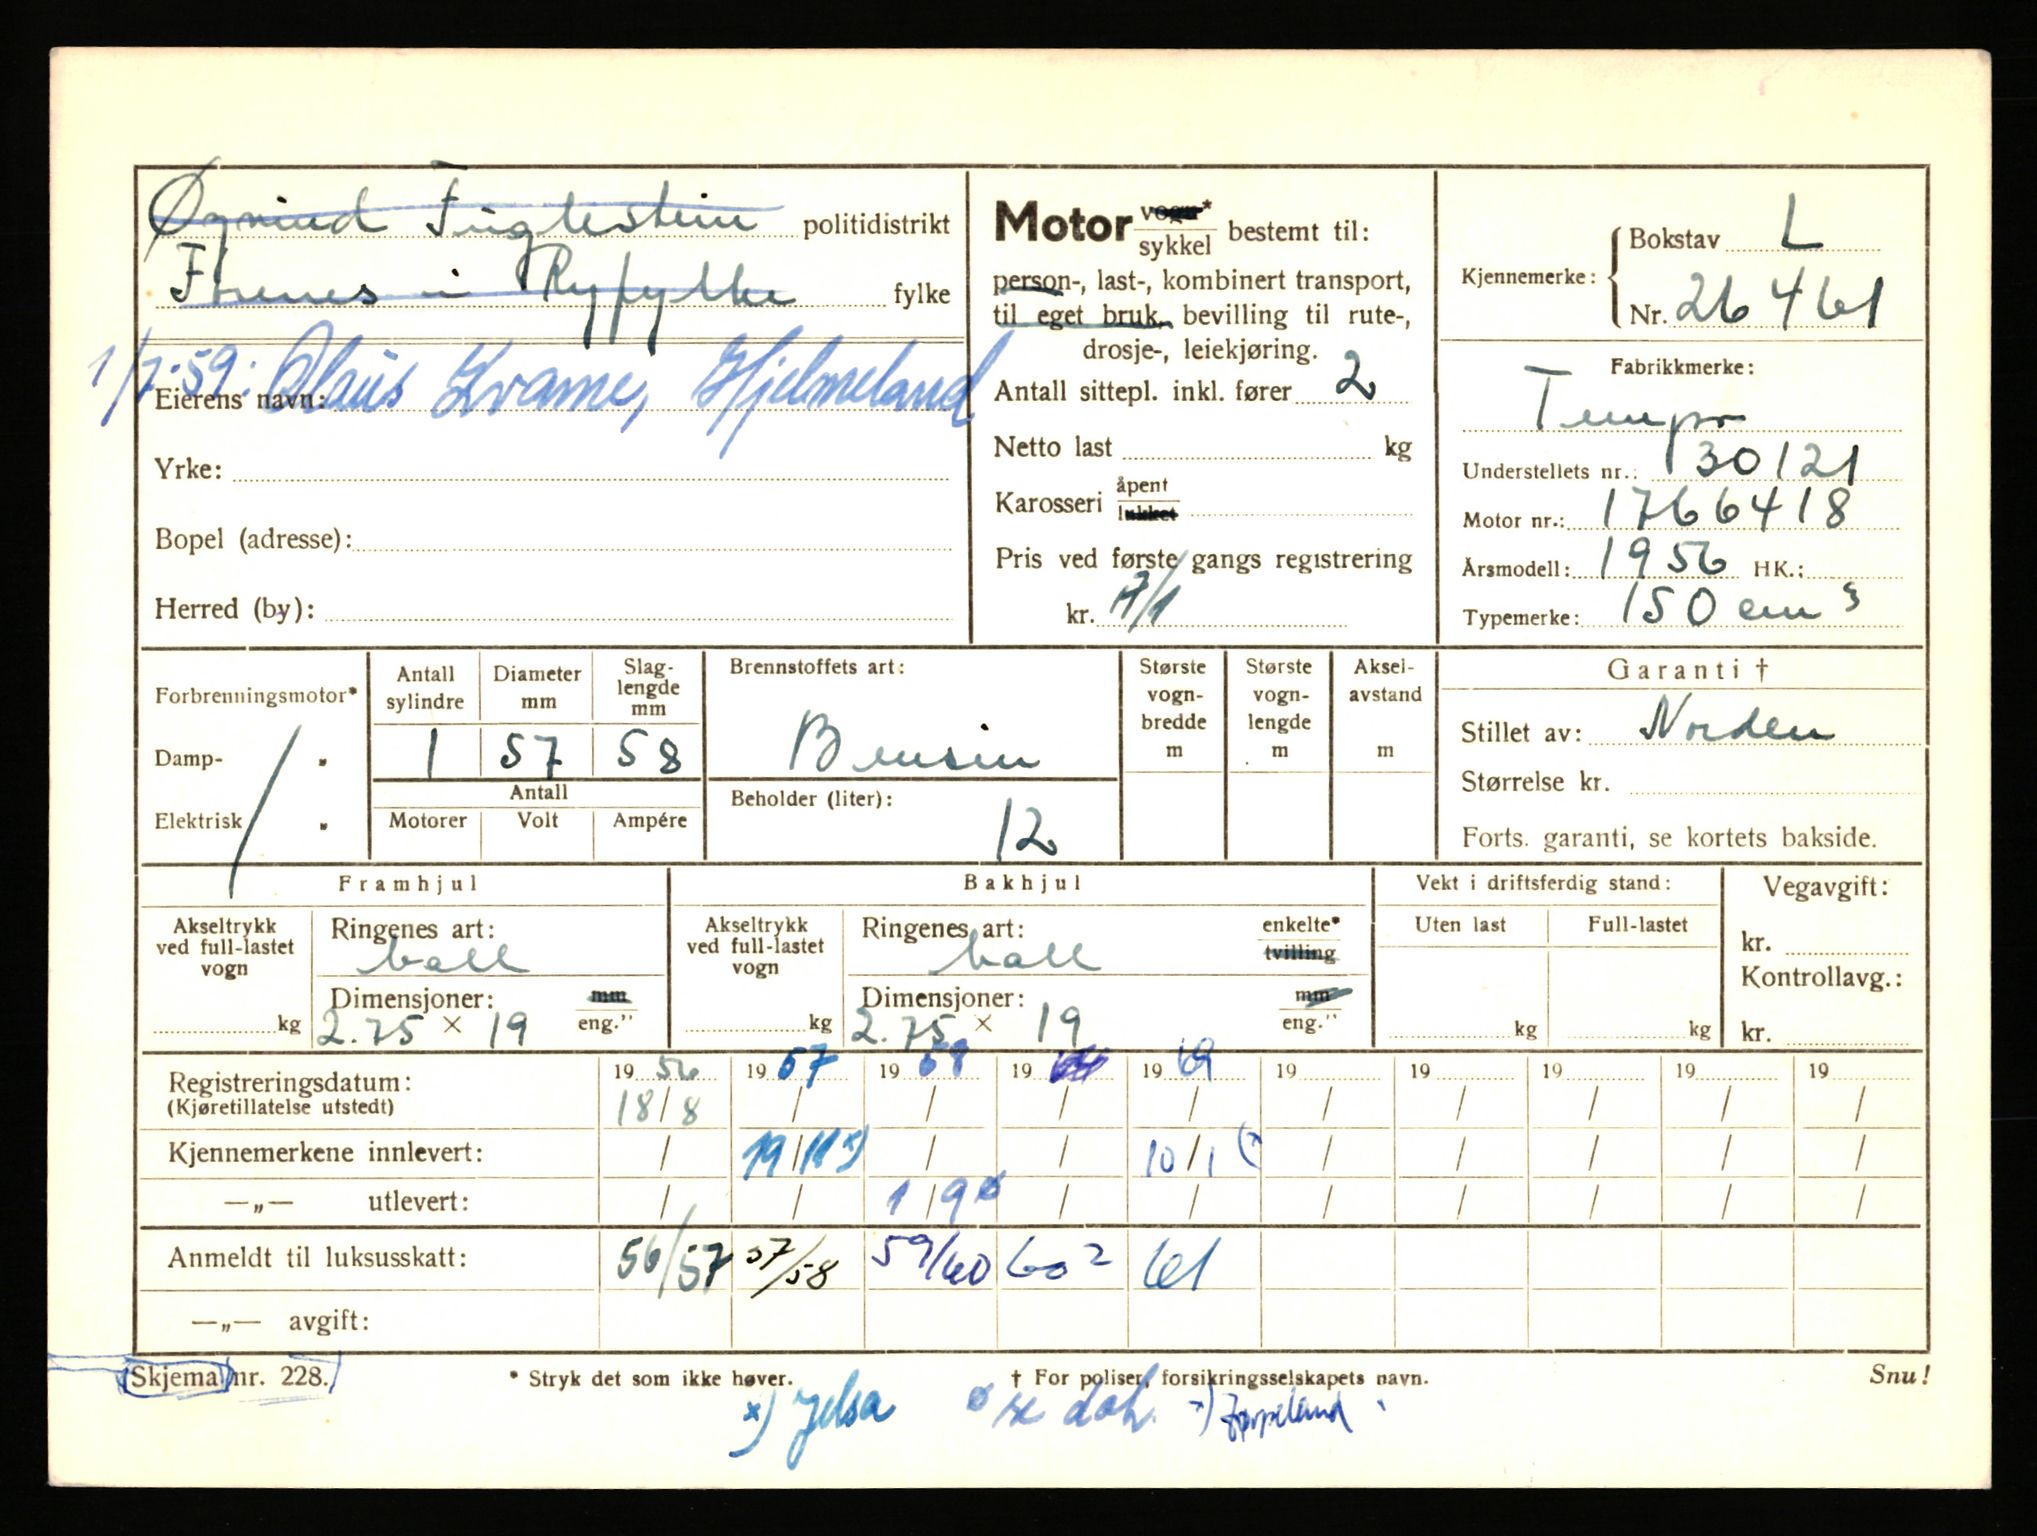 Øyvind Fuglestein politidistrikt
Fornes i Ryfylke fylke
1/7-59: Olaus Kvame, Hjelmeland
Eierens navn:
Yrke:
Bopel (adresse):
Herred (by):
Motor vogn* sykkel bestemt til:
person-, last-, kombinert transport,
til eget bruk, bevilling til rute-,
drosje-, leiekjøring.
Antall sittepl. inkl. fører 2
Netto last kg
Karosseri åpent lukket
Pris ved første gangs registrering
kr. A/1
Kjennemerke: Bokstav L
Nr. 26461
Fabrikkmerke:
Tempo
Understellets nr.: 130121
Motor nr.: 1766418
Årsmodell: 1956 HK.:
Typemerke: 150 cm3
Forbrenningsmotor*
Damp- "
Elektrisk "
Antall sylindre Diameter mm Slag-lengde mm
1 57 58
Antall
Motorer Volt Ampére
Brennstoffets art:
Bensin
Beholder (liter):
12
Største vogn-bredde m
Største vogn-lengde m
Aksel-avstand m
Garanti †
Stillet av: Norden
Størrelse kr.
Forts. garanti, se kortets bakside.
Framhjul
Akseltrykk ved full-lastet vogn kg
Ringenes art:
ball
Dimensjoner: mm eng."
2.75 × 19
Bakhjul
Akseltrykk ved full-lastet vogn kg
Ringenes art: enkelte* tvilling
ball
Dimensjoner: mm eng."
2.75 × 19
Vekt i driftsferdig stand:
Uten last Full-lastet
kg kg
Vegavgift:
kr.
Kontrollavg.:
kr.
19 56 19 57 19 58 19 19 19 19 19 19 19
Registreringsdatum:
(Kjøretillatelse utstedt) 18/8 / / / / / / / / /
Kjennemerkene innlevert: / 19/11 x) / / 10/1 / / / / /
—„— utlevert: / / 1/9 ø / / / / / / /
Anmeldt til luksusskatt: 56/57 57/58 59/60 60 2 61
—„— avgift:
Skjema nr. 228.
* Stryk det som ikke høver.
† For poliser, forsikringsselskapets navn.
Snu!
x) Jelsa ø se dok. x) Jørpeland